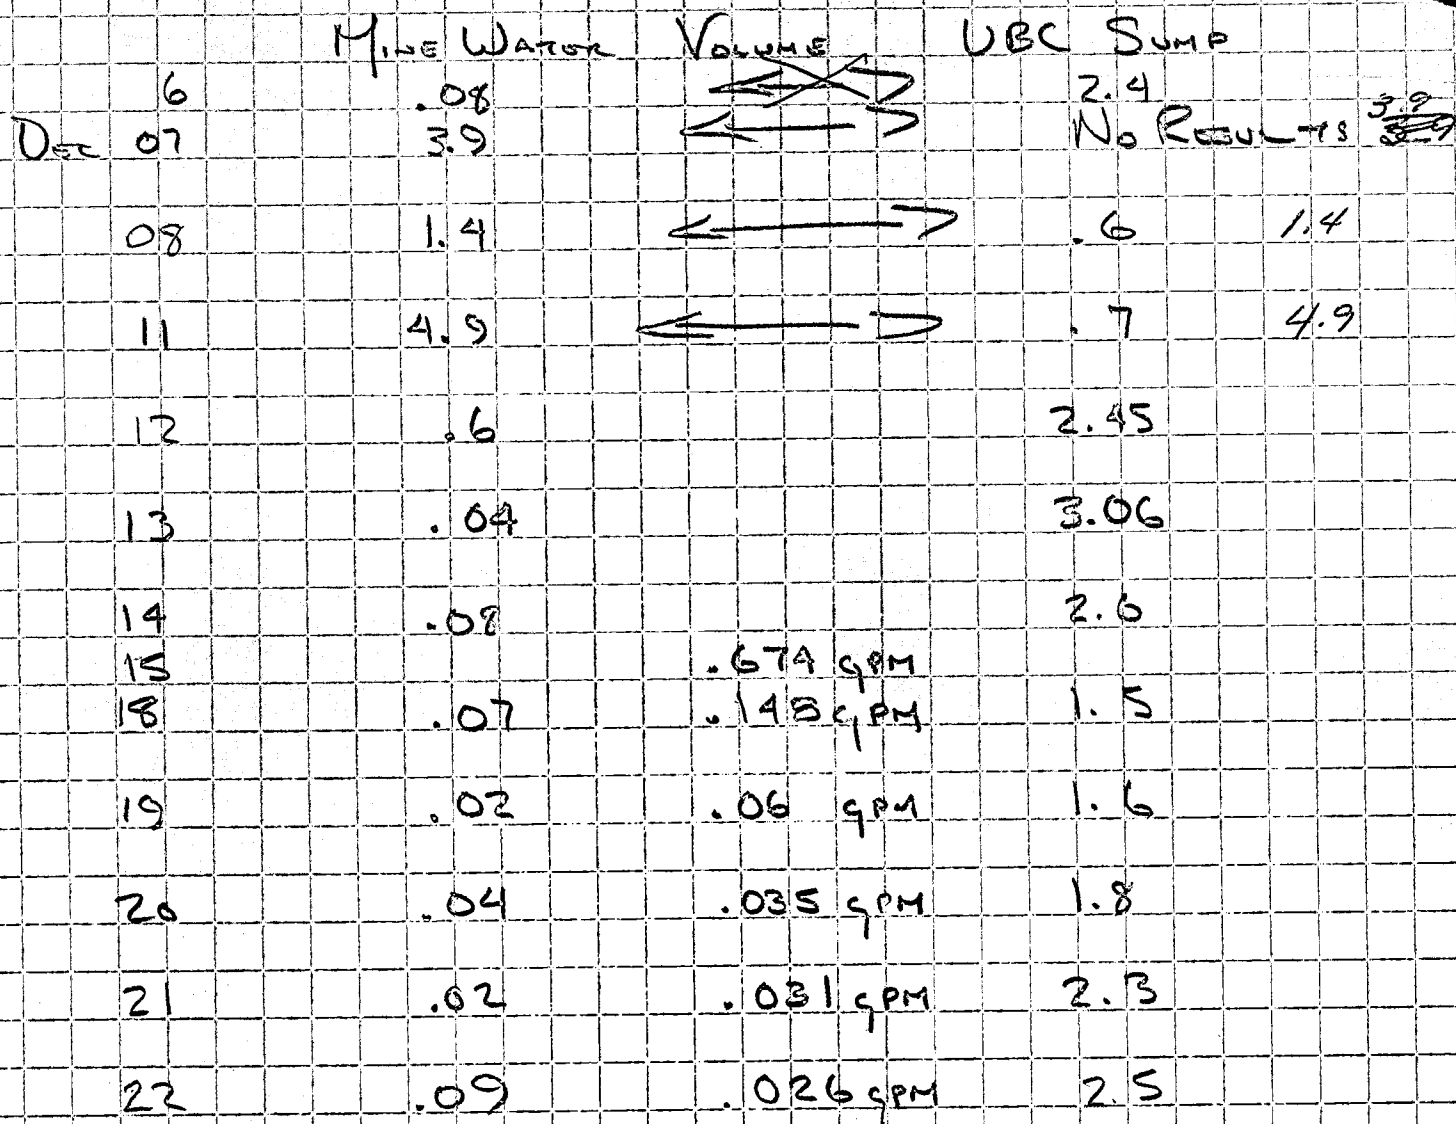 Mine Water Volume UBC Sump
6 .08 2.4
Dec 07 3.9 No Results 3.9
08 1.4 .6 1.4
11 4.9 .7 4.9
12 .6 2.45
13 .04 3.06
14 .08 2.6
15 .674 gpm
18 .07 .148 gpm 1.5
19 .02 .06 gpm 1.6
20 .04 .035 gpm 1.8
21 .02 .031 gpm 2.3
22 .09 .026 gpm 2.5